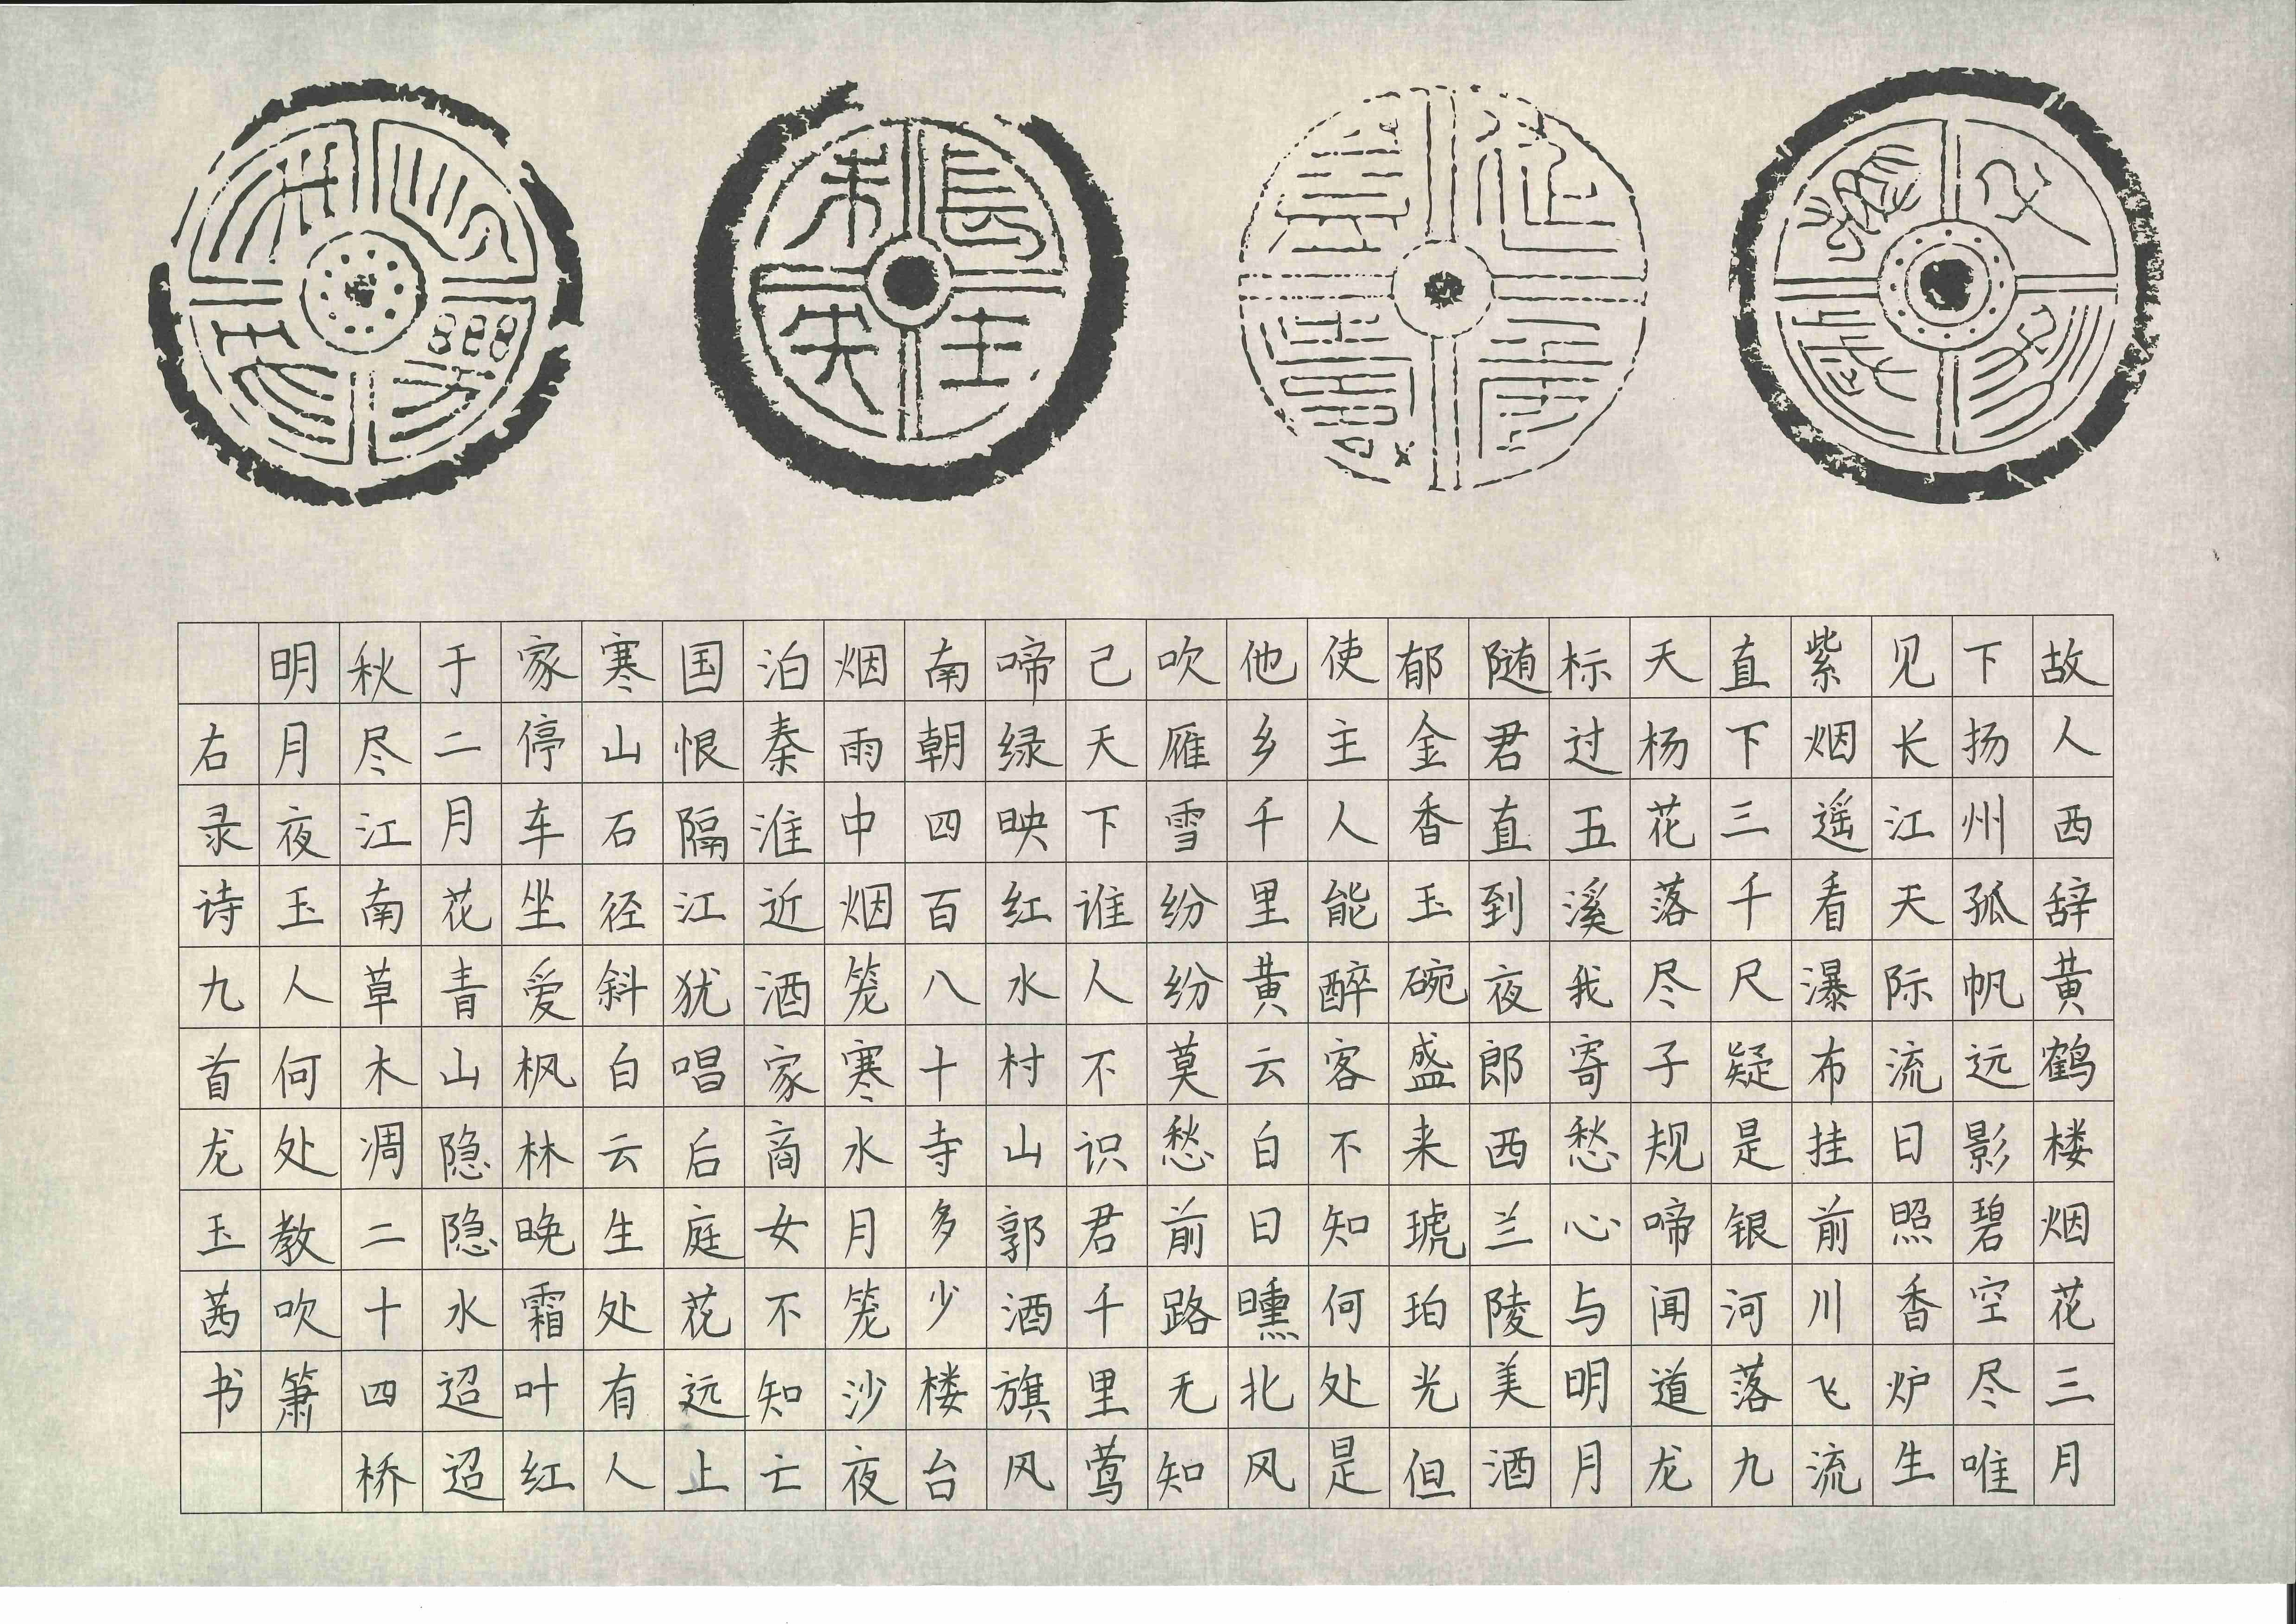 長生未央
故人西辞黄鹤楼烟花三月
下扬州孤帆远影碧空尽唯
见长江天际流日照香炉生
紫烟遥看瀑布挂前川飞流
直下三千尺疑是银河落九
天杨花落尽子规啼闻道龙
标过五溪我寄愁心与明月
随君直到夜郎西兰陵美酒
郁金香玉碗盛来琥珀光但
使主人能醉客不知何处是
他乡千里黄云白日曛北风
吹雁雪纷纷莫愁前路无知
己天下谁人不识君千里莺
啼绿映红水村山郭酒旗风
南朝四百八十寺多少楼台
烟雨中烟笼寒水月笼沙夜
泊秦淮近酒家商女不知亡
国恨隔江犹唱后庭花远上
寒山石径斜白云生处有人
家停车坐爱枫林晚霜叶红
于二月花青山隐隐水迢迢
秋尽江南草木凋二十四桥
明月夜玉人何处教吹箫
右录诗九首龙玉茜书